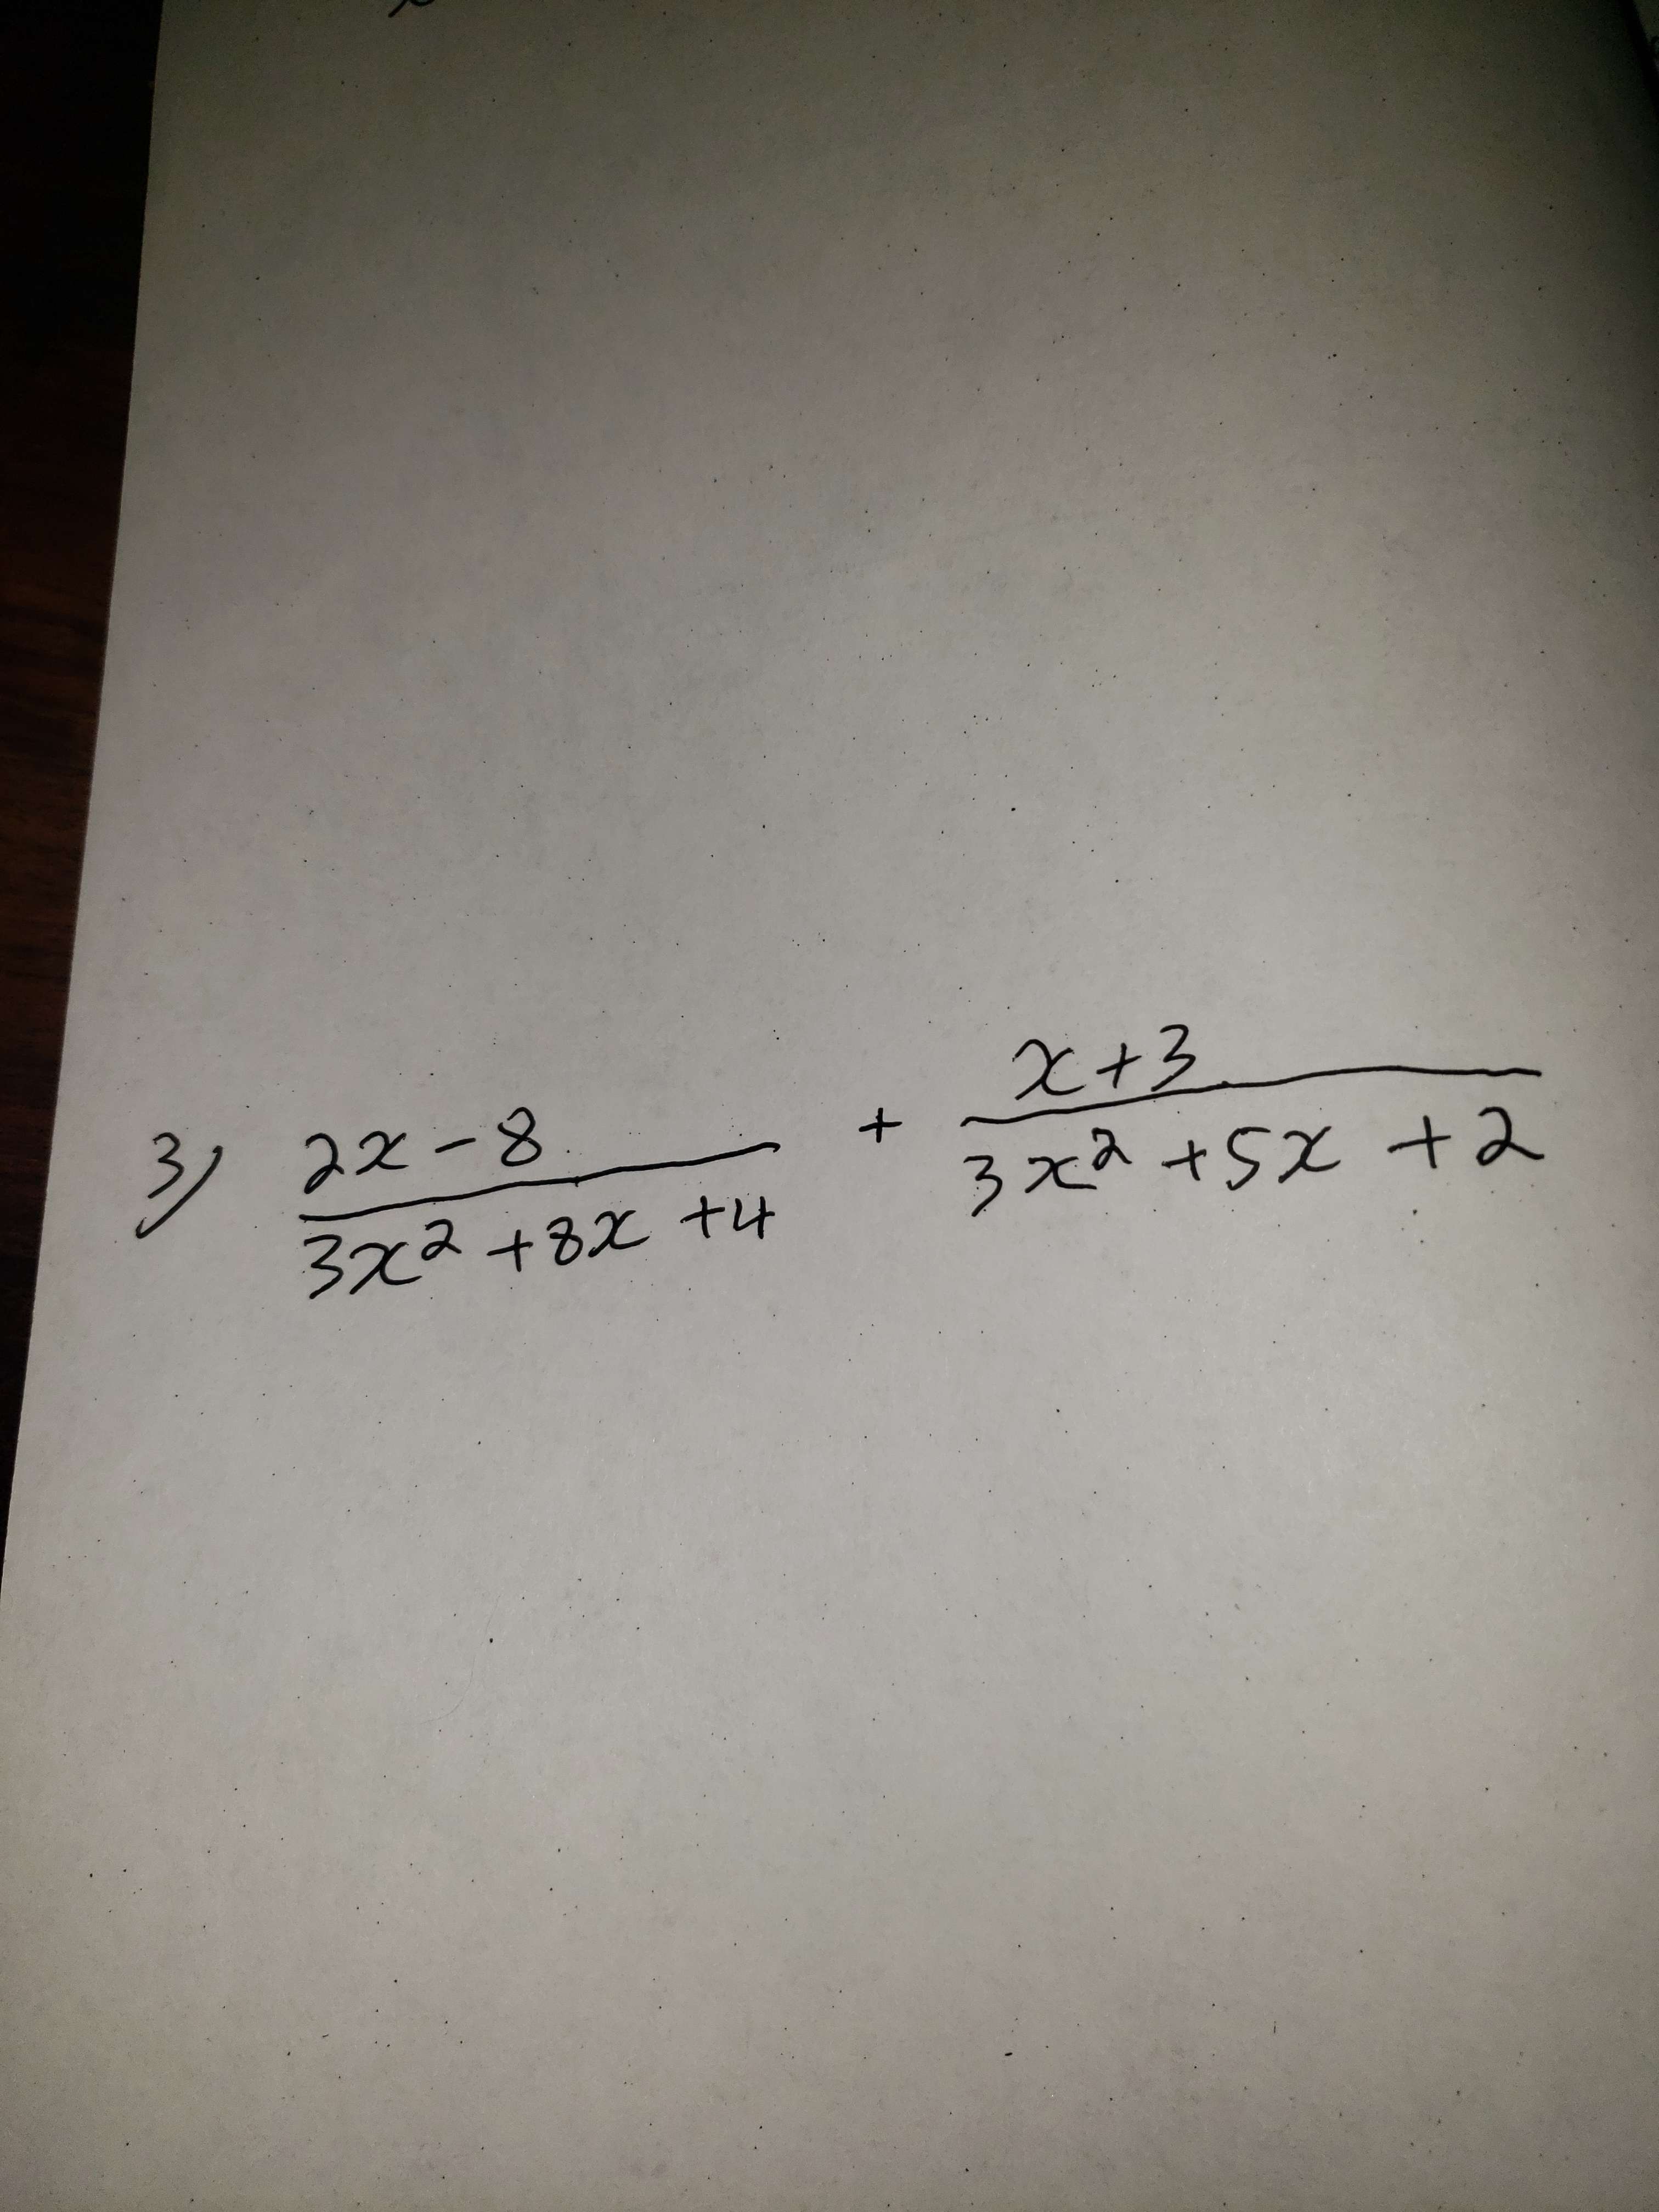 3) (2x-8)/(3x²+8x+4) + (x+3)/(3x²+5x+2)